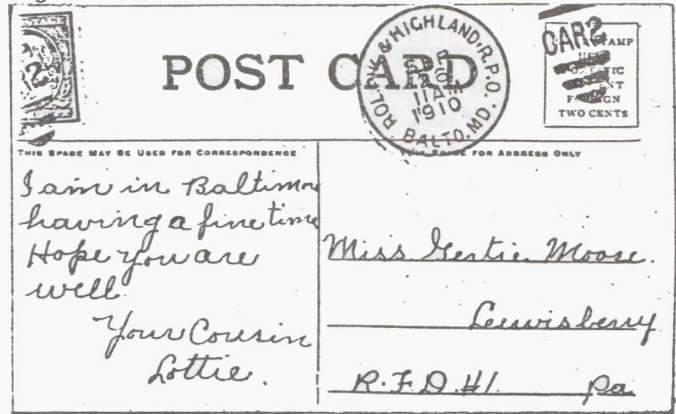 POST CARD
ROL PK & HIGHLAND. R.P.O.
26
11 AM
1910
BALTO. MD.
CAR 2
STAMP
FOREIGN
TWO CENTS
THIS SPACE MAY BE USED FOR CORRESPONDENCE
SPACE FOR ADDRESS ONLY
I am in Baltimore
having a fine time
Hope you are
well
Your Cousin
Lottie.
Miss Gertie Moose.
Lewisberry
R.F.D. #1. Pa.